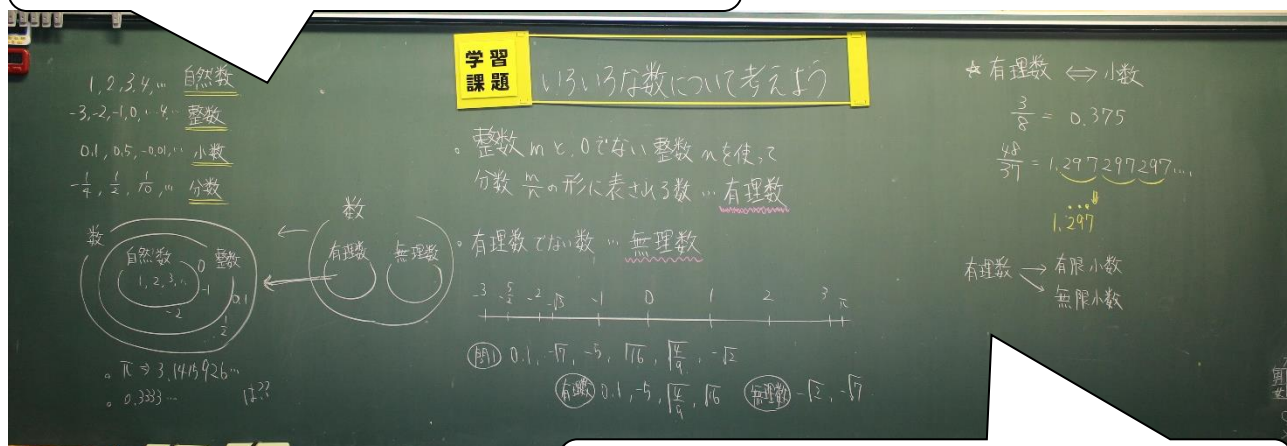 1, 2, 3, 4, … 自然数
-3, -2, -1, 0, ‥4‥ 整数
0.1, 0.5, -0.01, … 小数
-1/4, 1/2, 1/10, … 分数
数
自然数 0 整数
1, 2, 3, ‥
-1
-2
0.1
1/2
。π⇒3.1415926…
。0.3333… は??
学習
課題
いろいろな数について考えよう
。整数mと、0でない整数nを使って
分数 m/n の形に表される数 … 有理数
数
有理数 無理数
。有理数でない数 … 無理数
-3 -5/2 -2 -√3 -1 0 1 2 3 π
問1 0.1, -√7, -5, √16, √4/9, -√2
有理数 0.1, -5, √4/9, √16 無理数 -√2, -√7
☆有理数 ⇔ 小数
3/8 = 0.375
48/37 = 1.297297297…
1.297
有理数 → 有限小数
→ 無限小数